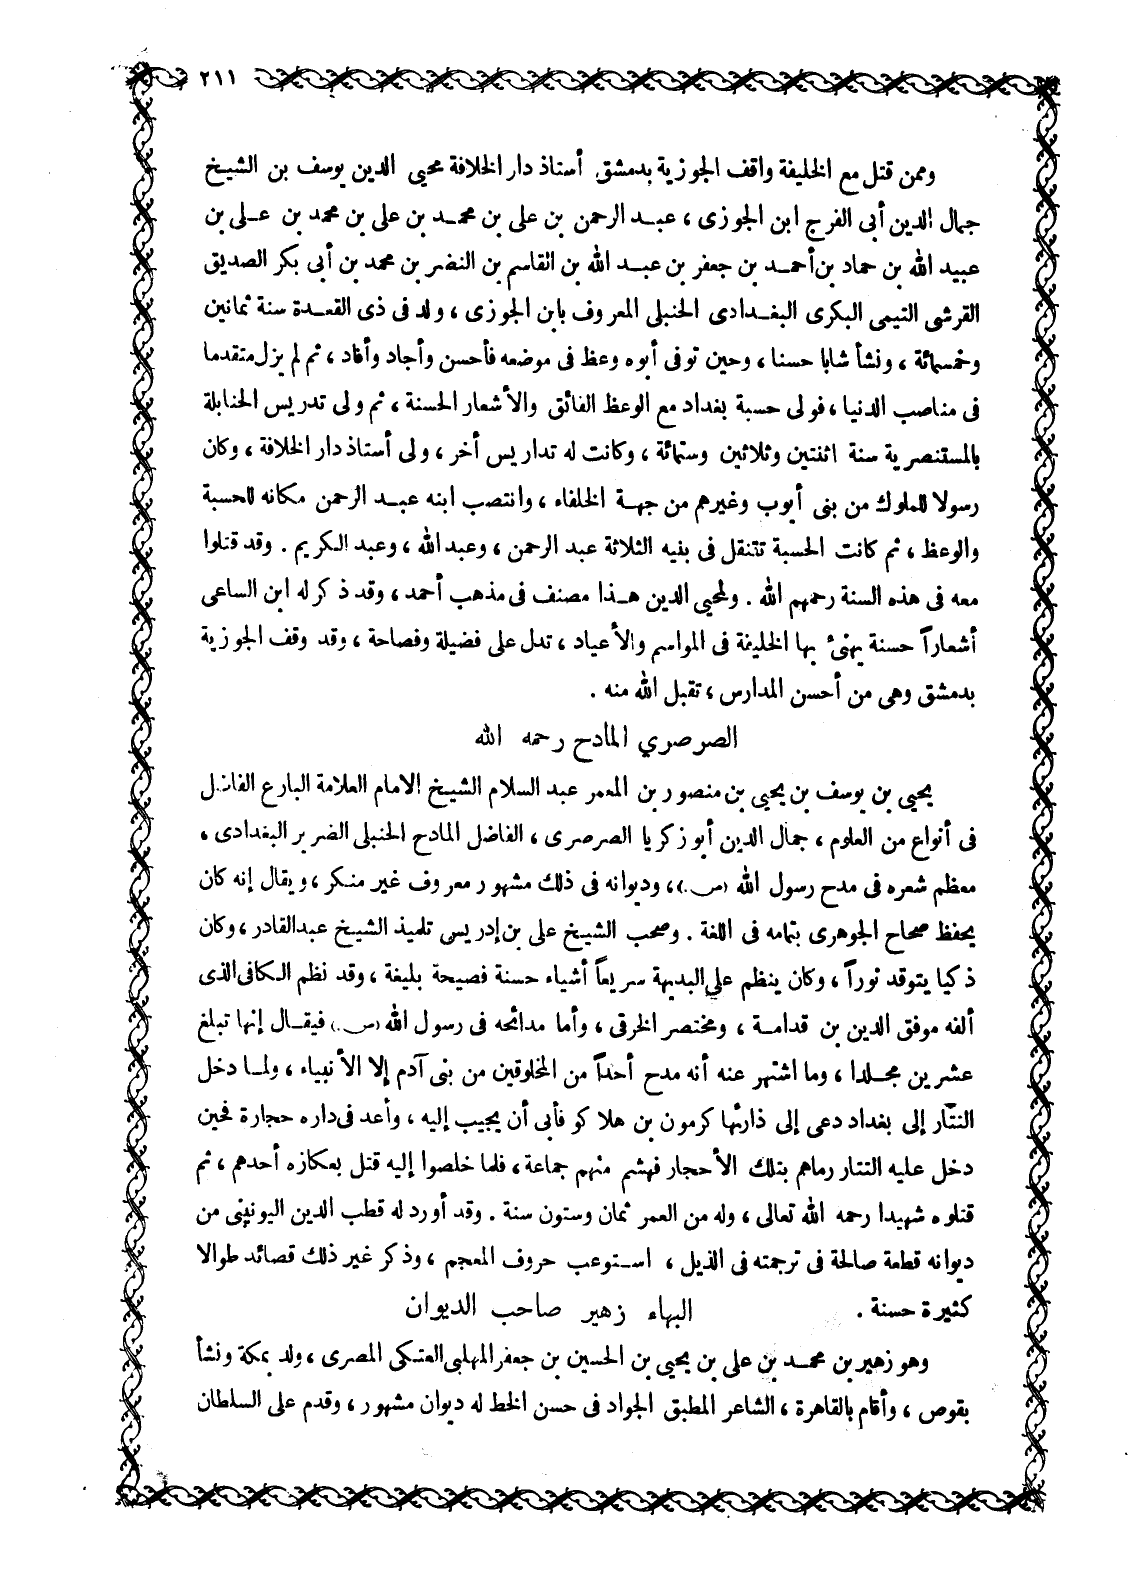 ٢١١
وممن قتل مع الخليفة واقف الجوزية بدمشق أستاذ دار الخلافة محيي الدين يوسف بن الشيخ
جمال الدين أبى الفرج ابن الجوزى ، عبد الرحمن بن على بن محمد بن على بن محمد بن على بن
عبيد الله بن حماد بن أحمد بن جعفر بن عبد الله بن القاسم بن النضر بن محمد بن أبى بكر الصديق
القرشى التيمى البكرى البغدادى الحنبلى المعروف بابن الجوزى ، ولد فى ذى القعدة سنة ثمانين
وخمسمائة ، ونشأ شابا حسنا ، وحين توفى أبوه وعظ فى موضعه فأحسن وأجاد وأفاد ، ثم لم يزل متقدما
فى مناصب الدنيا ، فولى حسبة بغداد مع الوعظ الفائق والأشعار الحسنة ، ثم ولى تدريس الحنابلة
بالمستنصرية سنة اثنتين وثلاثين وستمائة ، وكانت له تداريس أخر ، ولى أستاذ دار الخلافة ، وكان
رسولا للملوك من بنى أيوب وغيرهم من جهة الخلفاء ، وانتصب ابنه عبد الرحمن مكانه للحسبة
والوعظ ، ثم كانت الحسبة تتنقل فى بنيه الثلاثة عبد الرحمن ، وعبد الله ، وعبد الكريم . وقد قتلوا
معه فى هذه السنة رحمهم الله . ولمحيى الدين هذا مصنف فى مذهب أحمد ، وقد ذكر له ابن الساعى
أشعاراً حسنة يهنئ بها الخليفة فى المواسم والأعياد ، تدل على فضيلة وفصاحة ، وقد وقف الجوزية
بدمشق وهى من أحسن المدارس ، تقبل الله منه .
الصرصري المادح رحمه الله
يحيى بن يوسف بن يحيى بن منصور بن المعمر عبد السلام الشيخ الامام العلامة البارع الفاضل
فى أنواع من العلوم ، جمال الدين أبو زكريا الصرصرى ، الفاضل المادح الحنبلى الضرير البغدادى ،
معظم شعره فى مدح رسول الله (ص.) ، وديوانه فى ذلك مشهور معروف غير منكر ، ويقال إنه كان
يحفظ صحاح الجوهرى بتمامه فى اللغة . وصحب الشيخ على بن إدريس تلميذ الشيخ عبد القادر ، وكان
ذكيا يتوقد نوراً ، وكان ينظم على البديهة سريعاً أشياء حسنة فصيحة بليغة ، وقد نظم الكافى الذى
ألفه موفق الدين بن قدامة ، ومختصر الخرقى ، وأما مدائحه فى رسول الله (ص.) فيقال إنها تبلغ
عشرين مجلدا ، وما اشتهر عنه أنه مدح أحداً من المخلوقين من بنى آدم إلا الأنبياء ، ولما دخل
التتار إلى بغداد دعى إلى ذارئها كرمون بن هلاكو فأبى أن يجيب إليه ، وأعد فى داره حجارة فحين
دخل عليه التتار رماهم بتلك الأحجار فهشم منهم جماعة ، فلما خلصوا إليه قتل بعكازه أحدهم ، ثم
قتلوه شهيدا رحمه الله تعالى ، وله من العمر ثمان وستون سنة . وقد أورد له قطب الدين اليونينى من
ديوانه قطعة صالحة فى ترجمته فى الذيل ، استوعب حروف المعجم ، وذكر غير ذلك قصائد طوالا
كثيرة حسنة . البهاء زهير صاحب الديوان
وهو زهير بن محمد بن على بن يحيى بن الحسين بن جعفر المهلبى العتكى المصرى ، ولد بمكة ونشأ
بقوص ، وأقام بالقاهرة ، الشاعر المطبق الجواد فى حسن الخط له ديوان مشهور ، وقدم على السلطان